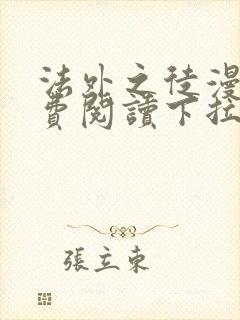 法外之徒漫
費閱讀下拉
張立東